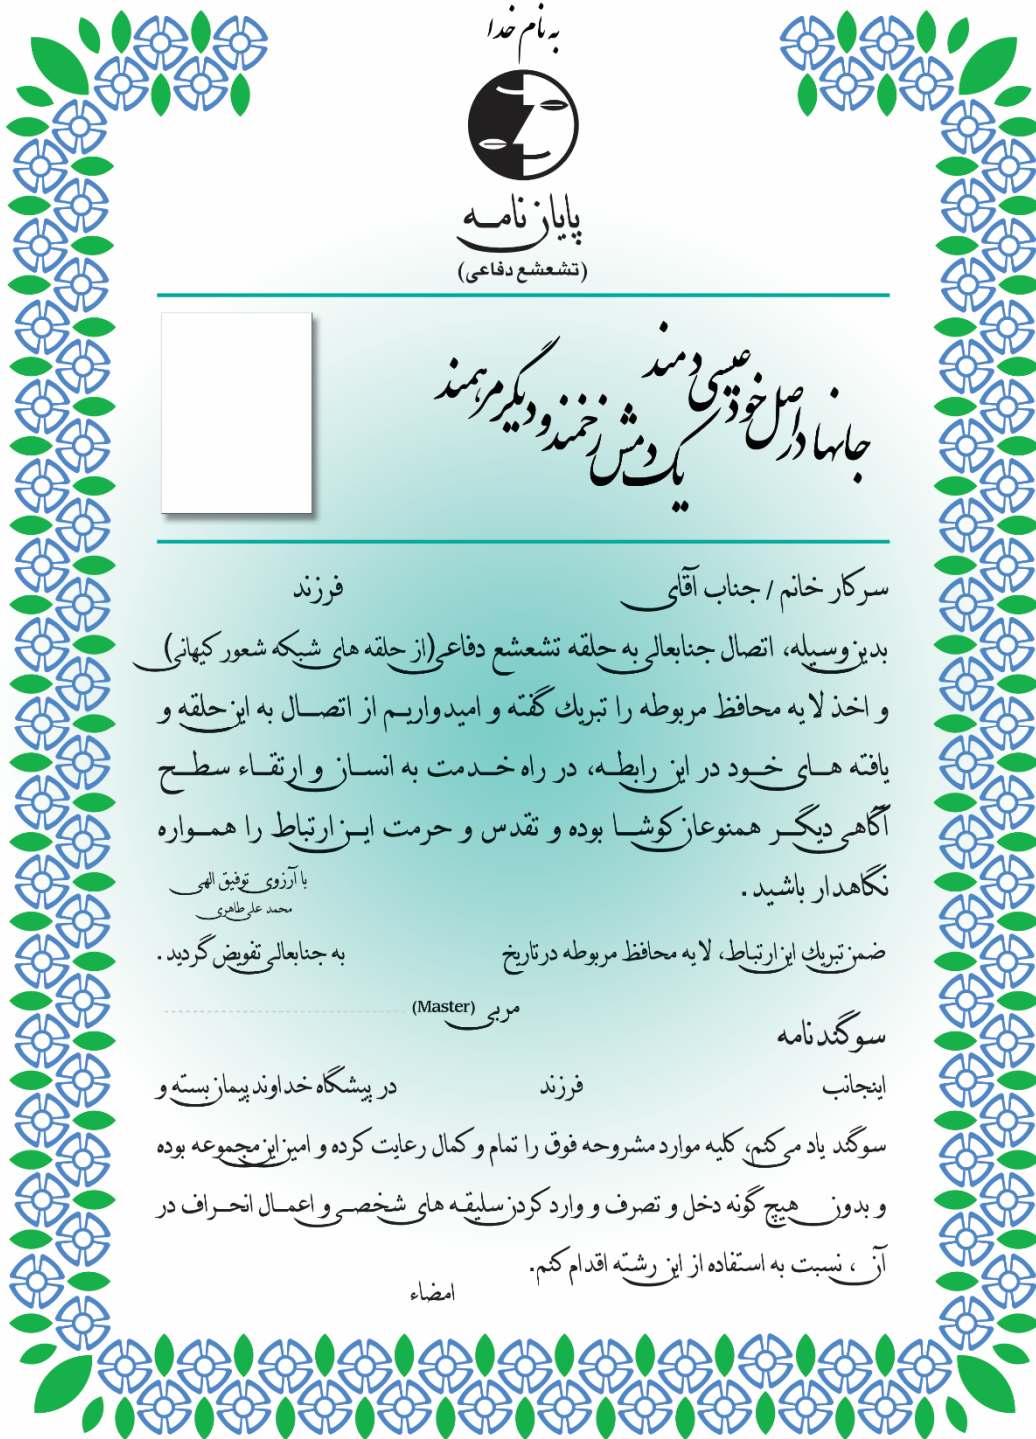 به نام خدا
پایان نامه
(تشعشع دفاعی)
جانها در اصل خود عیسی دمند
یک دمش زخمند و دیگر مرهمند
سرکار خانم / جناب آقای فرزند
بدین وسیله، اتصال جنابعالی به حلقه تشعشع دفاعی (از حلقه های شبکه شعور کیهانی)
و اخذ لایه محافظ مربوطه را تبریك گفته و امیدواریم از اتصال به این حلقه و
یافته های خود در این رابطه، در راه خدمت به انسان و ارتقاء سطح
آگاهی دیگر همنوعان کوشا بوده و تقدس و حرمت این ارتباط را همواره
نگاهدار باشید .
با آرزوی توفیق الهی
محمد علی طاهری
ضمن تبریك این ارتباط، لایه محافظ مربوطه در تاریخ به جنابعالی تفویض گردید .
مربی (Master)
سوگندنامه
اینجانب فرزند در پیشگاه خداوند پیمان بسته و
سوگند یاد می کنم، کلیه موارد مشروحه فوق را تمام و کمال رعایت کرده و امین این مجموعه بوده
و بدون هیچ گونه دخل و تصرف و وارد کردن سلیقه های شخصی و اعمال انحراف در
آن ، نسبت به استفاده از این رشته اقدام کنم.
امضاء